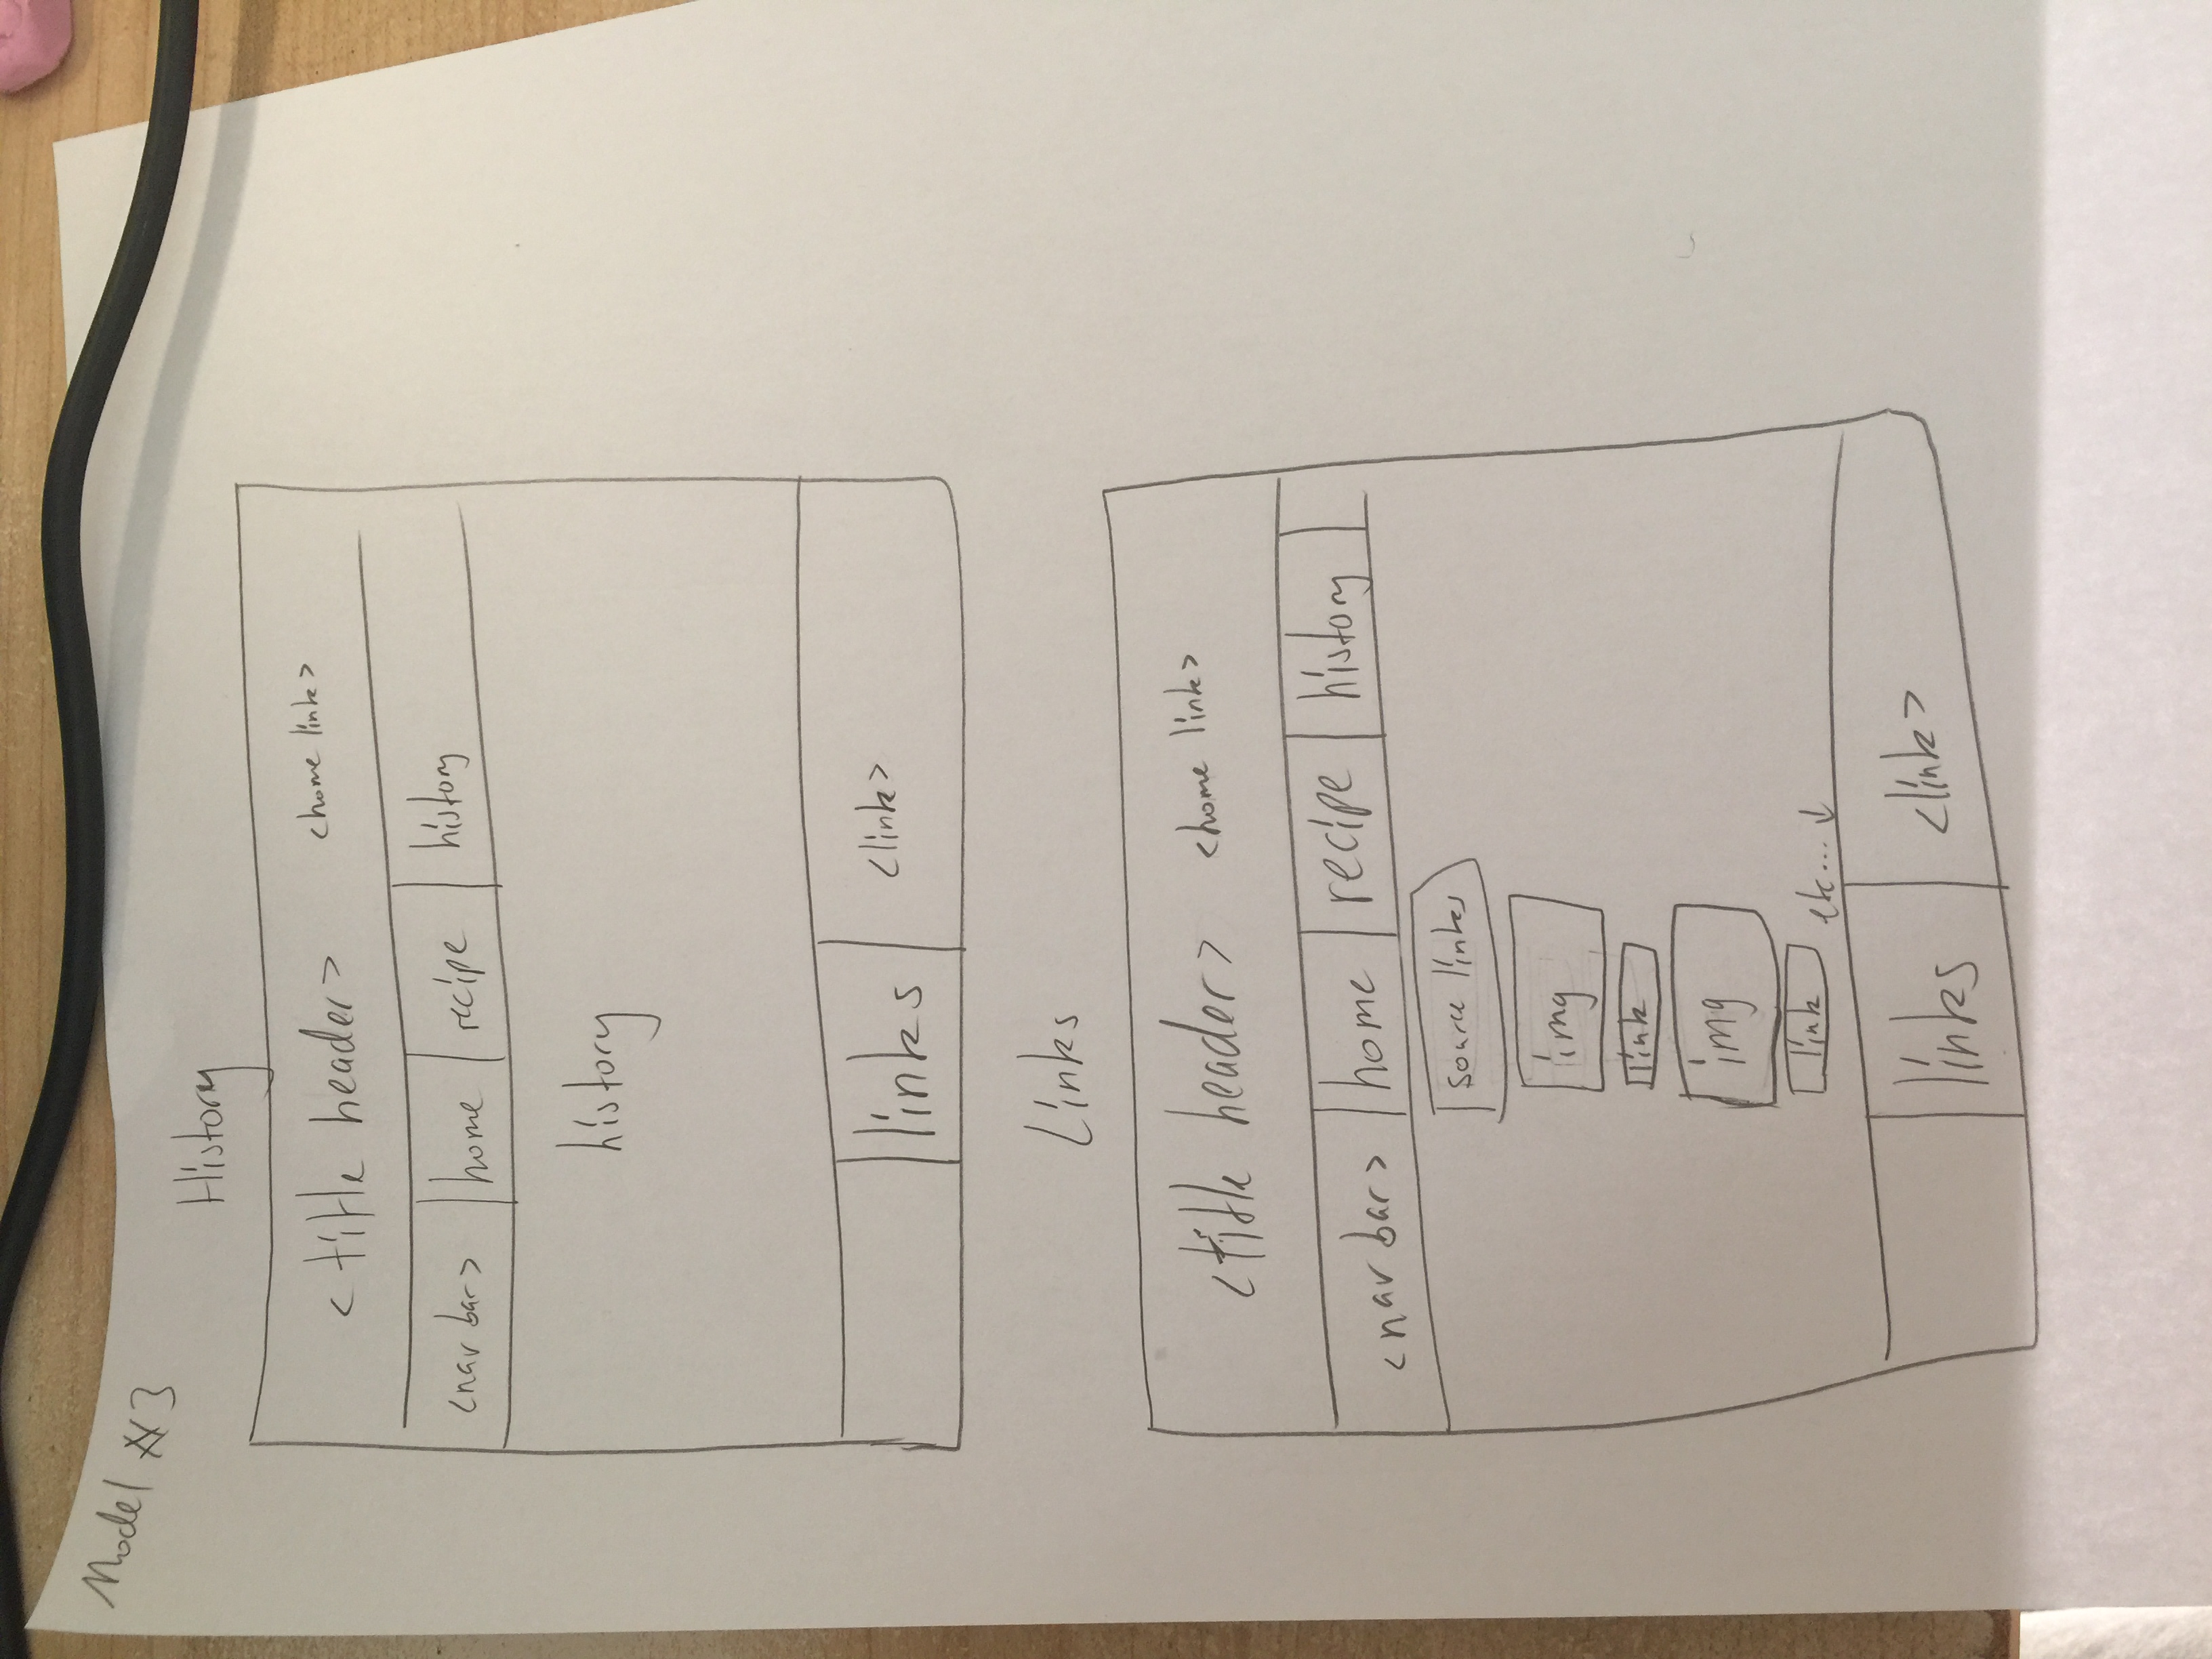 Model #3
History
<title header> <home link>
<nav bar> home recipe history
history
links <link>
Links
<title header> <home link>
<nav bar> home recipe history
source links
img
link
img
link etc... ↓
links <link>